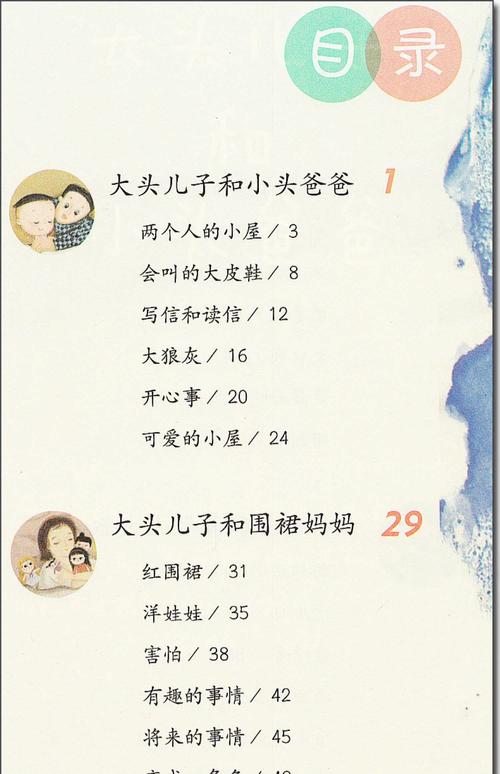 目录
大头儿子和小头爸爸 1
两个人的小屋 / 3
会叫的大皮鞋 / 8
写信和读信 / 12
大狼灰 / 16
开心事 / 20
可爱的小屋 / 24
大头儿子和围裙妈妈 29
红围裙 / 31
洋娃娃 / 35
害怕 / 38
有趣的事情 / 42
将来的事情 / 45